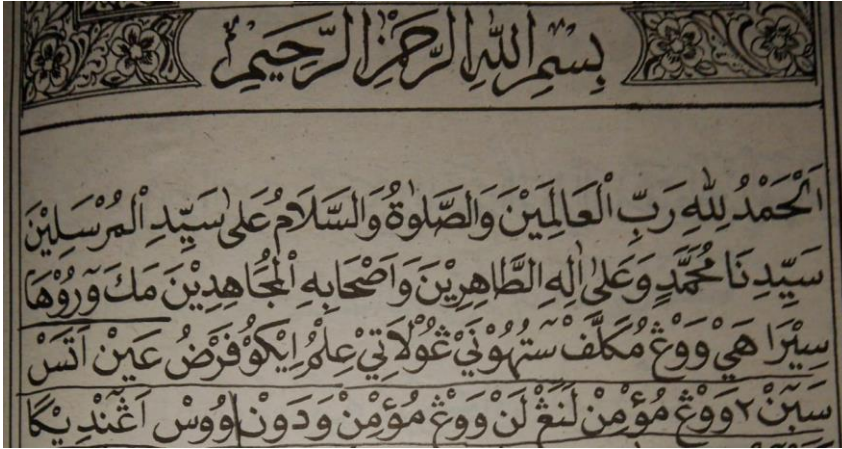 بِسْمِ اللهِ الرَّحْمٰنِ الرَّحِيْمِ
اَلْحَمْدُ لِلّٰهِ رَبِّ الْعَالَمِيْنَ وَالصَّلٰوةُ وَالسَّلَامُ عَلٰى سَيِّدِ الْمُرْسَلِيْنَ
سَيِّدِنَا مُحَمَّدٍ وَعَلٰى اٰلِهِ الطَّاهِرِيْنَ وَاَصْحَابِهِ الْمُجَاهِدِيْنَ مَكَ وَرُوْهَا
سِيْرَا هَيْ وَوْڠْ مُكَلَّفْ سَتُهُوْنَيْ ڠُوْلَاتِيْ عِلْمُ اِيْكُوْ فَرْضُ عَيْنْ اَتَسْ
سَبَنْ٢ وَوْڠْ مُؤْمِنْ لَنَڠْ لَنْ وَوْڠْ مُؤْمِنْ وَدَوْنْ وُوْسْ اَڠَنْدِيْكَا